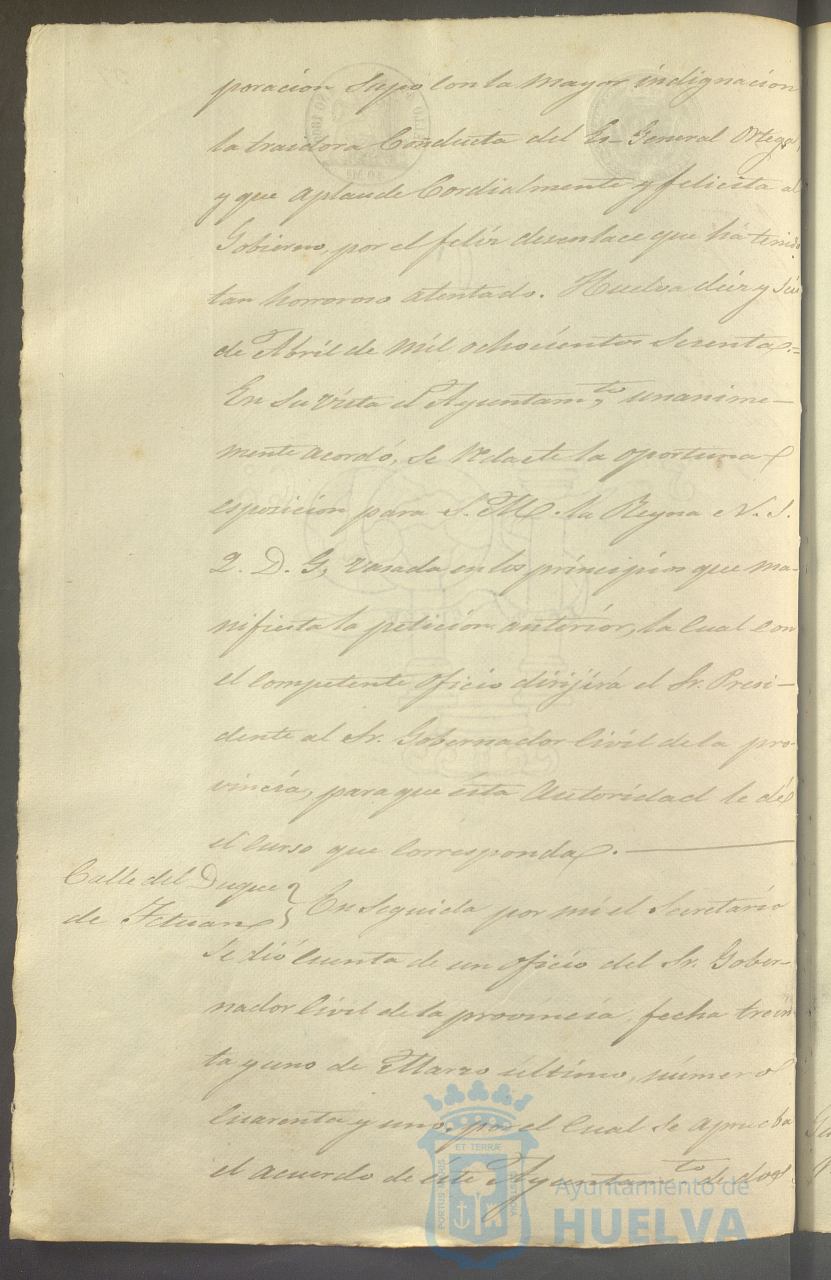 poracion supo con la mayor indignacion
la traidora Conducta del Ex-General Ortega,
y que aplaude Cordialmente y felicita al
Gobierno, por el feliz desenlace que há tenido
tan horroroso atentado. Huelva diez y seis
de Abril de mil ochocientos sesenta.=
En su vista el Ayuntam.to, unanime-
mente acordó, se redacte la oportuna
esposicion para S. M. la Reyna N. S.
Q. D. G, vasada en los principios que ma-
nifiesta la peticion anterior, la cual con
el competente oficio dirijirá el Sr. Presi-
dente al Sr. Gobernador Civil de la pro-
vincia, para que ésta Autoridad le dé
el curso que corresponda.
Calle del Duque
de Tetuan
En seguida por mi el Secretario
se dió cuenta de un oficio del Sr. Gober-
nador Civil de la provincia, fecha trein-
ta y uno de Marzo último, número
cuarenta y uno, por el cual se aprueba
el acuerdo de éste Ayuntam.to de dos
PORTUS MARIS ET TERRÆ CUSTODIA
Ayuntamiento de
HUELVA